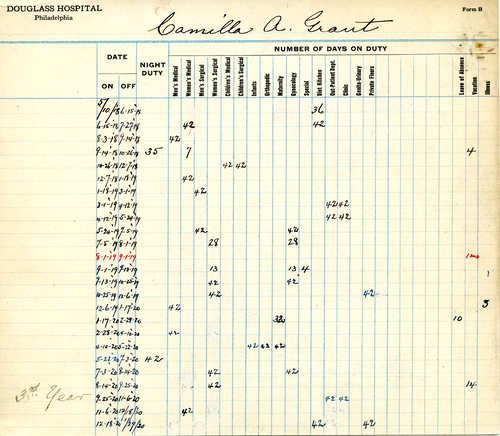 DOUGLASS HOSPITAL
Philadelphia
Form B
Camilla A. Grant
DATE NIGHT DUTY NUMBER OF DAYS ON DUTY
ON OFF Men's Medical Women's Medical Men's Surgical Women's Surgical Children's Medical Children's Surgical Infants Orthopedic Maternity Gynecology Special Diet Kitchen Out Patient Dept. Clinic Genito-Urinary Private Floors Leave of Absence Vacation Illness
5/10/18 6-15-18 36
6-15-18 7-27-18 42 42
8-3-18 9-14-18 42
9-14-18 10-26-18 35 7 4
10-26-18 12-7-18 42 42
12-7-18 1-18-19 42
1-18-19 3-1-19 42
3-1-19 4-12-19 42 42
4-12-19 5-24-19 42 42
5-24-19 7-5-19 42 42
7-5-19 8-1-19 28 28
8-1-19 9-1-19 1 mo
9-1-19 9-13-19 13 13 4 1
9-13-19 10-25-19 42 42
10-25-19 12-6-19 42 42
12-6-19 1-17-20 42 3
1-17-20 2-28-20 10
2-28-20 4-10-20 42
4-10-20 5-22-20 42 42
5-22-20 7-3-20 42
7-3-20 8-14-20 42 42
8-14-20 9-25-20 42 14
3rd Year
9-25-20 11-6-20 42 42
11-6-20 12/18/20 42
12-18-20 42 42